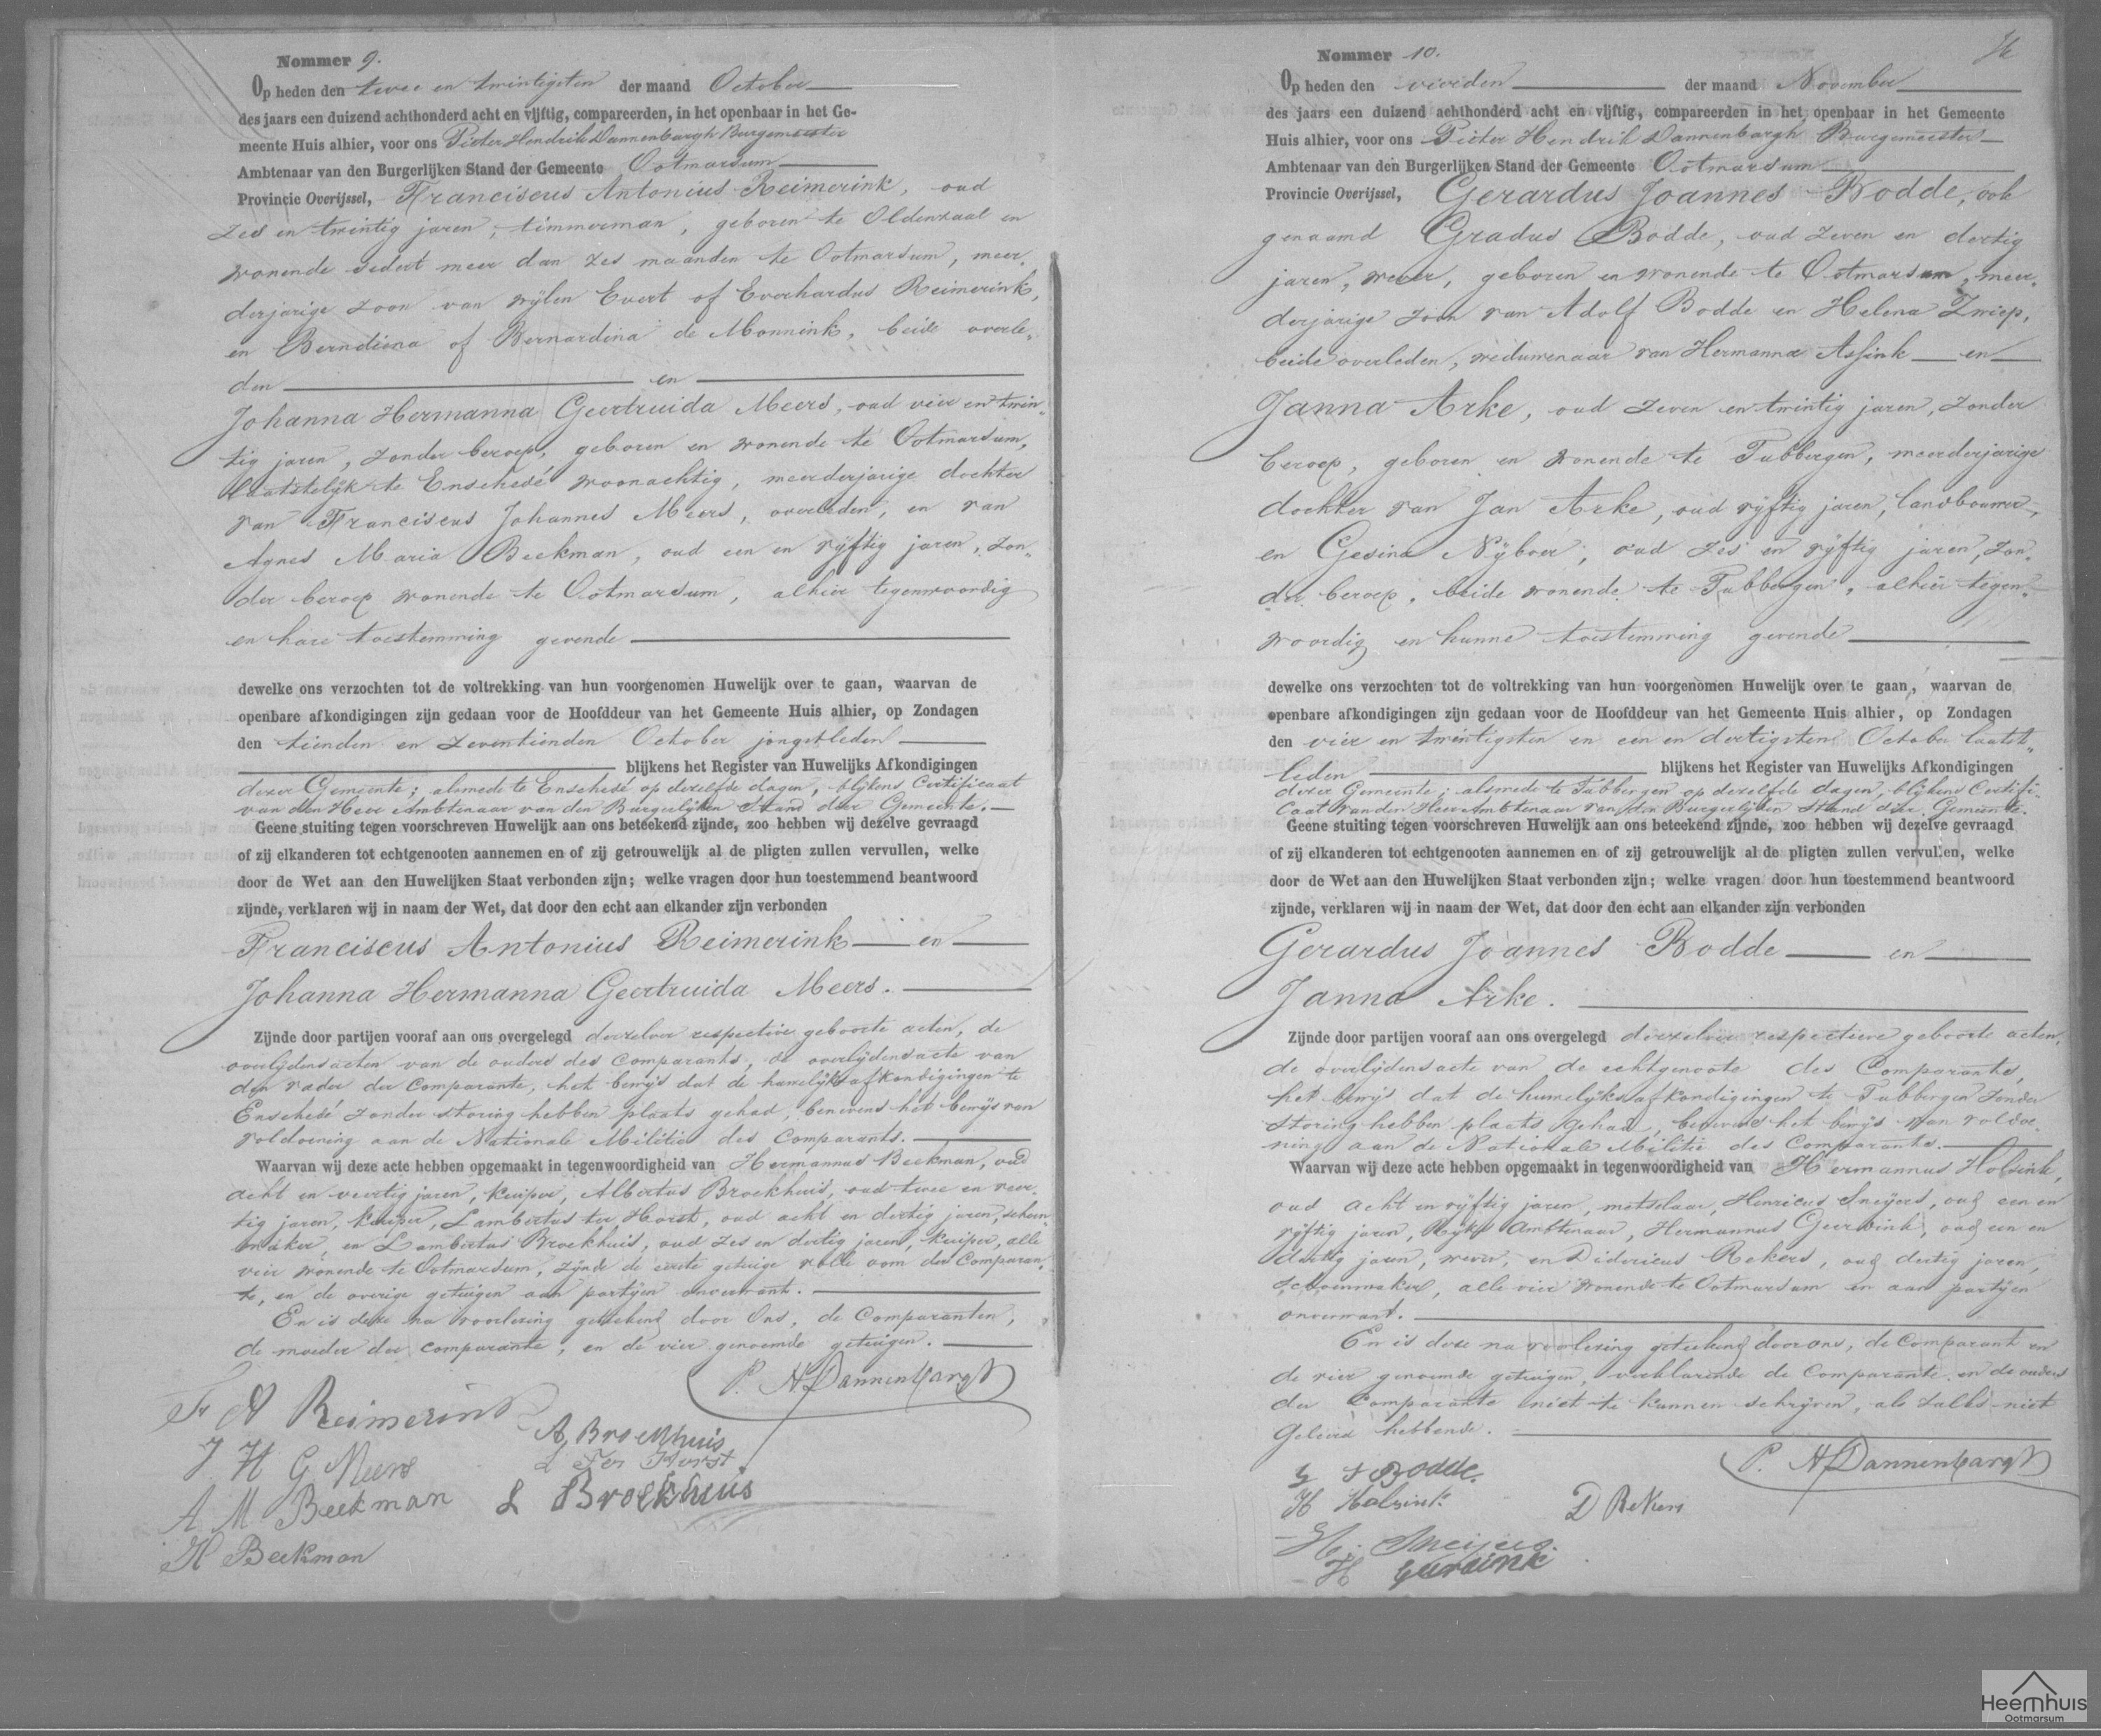 Nommer 9.
Op heden den twee en twintigsten der maand October
des jaars een duizend achthonderd acht en vijftig, compareerden, in het openbaar in het Ge-
meente Huis alhier, voor ons Pieter Hendrik Dannenbargh Burgemeester
Ambtenaar van den Burgerlijken Stand der Gemeente Ootmarsum
Provincie Overijssel, Franciscus Antonius Reimerink, oud
zes en twintig jaren, timmerman, geboren te Oldenzaal en
wonende sedert meer dan zes maanden te Ootmarsum, meer„
derjarige zoon van wijlen Evert of Everhardus Reimerink,
en Berndiena of Bernardina de Monnink, beide overle„
den en
Johanna Hermanna Geertruida Meers, oud vier en twin„
tig jaren, zonder beroep, geboren en wonende te Ootmarsum,
laatstelijk te Enschedé woonachtig, meerderjarige dochter
van Franciscus Johannes Meers, overleden, en van
Agnes Maria Beekman, oud een en vijftig jaren, zon„
der beroep wonende te Ootmarsum, alhier tegenwoordig
en hare toestemming gevende
dewelke ons verzochten tot de voltrekking van hun voorgenomen Huwelijk over te gaan, waarvan de
openbare afkondigingen zijn gedaan voor de Hoofddeur van het Gemeente Huis alhier, op Zondagen
den tienden en zeventienden October jongstleden
blijkens het Register van Huwelijks Afkondigingen
dezer Gemeente; alsmede te Enschedé op dezelfde dagen, blijkens Certificaat
van den Heer Ambtenaar van den Burgerlijken Stand dier Gemeente.
Geene stuiting tegen voorschreven Huwelijk aan ons beteekend zijnde, zoo hebben wij dezelve gevraagd
of zij elkanderen tot echtgenooten aannemen en of zij getrouwelijk al de pligten zullen vervullen, welke
door de Wet aan den Huwelijken Staat verbonden zijn; welke vragen door hun toestemmend beantwoord
zijnde, verklaren wij in naam der Wet, dat door den echt aan elkander zijn verbonden
Franciscus Antonius Reimerink en
Johanna Hermanna Geertruida Meers.
Zijnde door partijen vooraf aan ons overgelegd derzelver respective geboorte acten, de
overlijdensacten van de ouders des Comparants, de overlijdensacte van
den vader der Comparante, het bewijs dat de huwelijksafkondigingen te
Enschedé zonder storing hebben plaats gehad, benevens het bewijs van
voldoening aan de Nationale Militie des Comparants.
Waarvan wij deze acte hebben opgemaakt in tegenwoordigheid van Hermannus Beekman, oud
acht en veertig jaren, kuiper, Albertus Broekhuis, oud twee en veer„
tig jaren, kuiper, Lambertus ter Horst, oud acht en dertig jaren, schoen„
maker, en Lambertus Broekhuis, oud zes en dertig jaren, kuiper, alle
vier wonende te Ootmarsum, zijnde de eerste getuige volle oom der Comparan„
te, en de overige getuigen aan partijen onverwant.
En is deze na voorlezing geteekend door Ons, de Comparanten,
de moeder der comparante, en de vier genoemde getuigen.
P. H Dannenbargh
F A Reimerink
J H G Meers
A M Beekman
H Beekman
A Broekhuis
L Ter Horst
L Broekhuis
Nommer 10.
Op heden den vierden der maand November
des jaars een duizend achthonderd acht en vijftig, compareerden in het openbaar in het Gemeente
Huis alhier, voor ons Pieter Hendrik Dannenbargh Burgemeester
Ambtenaar van den Burgerlijken Stand der Gemeente Ootmarsum
Provincie Overijssel, Gerardus Joannes Bodde, ook
genaamd Gradus Bodde, oud zeven en dertig
jaren, wever, geboren en wonende te Ootmarsum, meer„
derjarige zoon van Adolf Bodde en Helena Zwiep,
beide overleden, weduwenaar van Hermanna Assink en
Janna Arke, oud zeven en twintig jaren, zonder
beroep, geboren en wonende te Tubbergen, meerderjarige
dochter van Jan Arke, oud vijftig jaren, landbouwer,
en Gesina Nijboer, oud zes en vijftig jaren, zon„
der beroep, beide wonende te Tubbergen, alhier tegen„
woordig en hunne toestemming gevende
dewelke ons verzochten tot de voltrekking van hun voorgenomen Huwelijk over te gaan, waarvan de
openbare afkondigingen zijn gedaan voor de Hoofddeur van het Gemeente Huis alhier, op Zondagen
den vier en twintigsten en een en dertigsten October laatst„
leden blijkens het Register van Huwelijks Afkondigingen
dezer Gemeente; alsmede te Tubbergen op dezelfde dagen, blijkens Certifi„
caat van den Heer Ambtenaar van den Burgerlijken Stand dier Gemeente.
Geene stuiting tegen voorschreven Huwelijk aan ons beteekend zijnde, zoo hebben wij dezelve gevraagd
of zij elkanderen tot echtgenooten aannemen en of zij getrouwelijk al de pligten zullen vervullen, welke
door de Wet aan den Huwelijken Staat verbonden zijn; welke vragen door hun toestemmend beantwoord
zijnde, verklaren wij in naam der Wet, dat door den echt aan elkander zijn verbonden
Gerardus Joannes Bodde en
Janna Arke.
Zijnde door partijen vooraf aan ons overgelegd derzelver respective geboorte acten,
de overlijdensacte van de echtgenoote des Comparants,
het bewijs dat de huwelijksafkondigingen te Tubbergen zonder
storing hebben plaats gehad, benevens het bewijs van voldoe„
ning aan de Nationale Militie des Comparants.
Waarvan wij deze acte hebben opgemaakt in tegenwoordigheid van Hermannus Holsink,
oud acht en vijftig jaren, metselaar, Henricus Sneijers, oud een en
vijftig jaren, Rijks Ambtenaar, Hermannus Geerdink, oud een en
dertig jaren, wever, en Didericus Rekers, oud dertig jaren,
schoenmaker, alle vier wonende te Ootmarsum en aan partijen
onverwant.
En is deze na voorlezing geteekend door ons, de Comparant en
de vier genoemde getuigen, verklarende de Comparante en de ouders
der Comparante niet te kunnen schrijven, als zulks niet
geleerd hebbende.
P. H Dannenbargh
G J Bodde.
H Holsink
D Rekers
H. Sneijers.
H Geerdink
Heemhuis
Ootmarsum